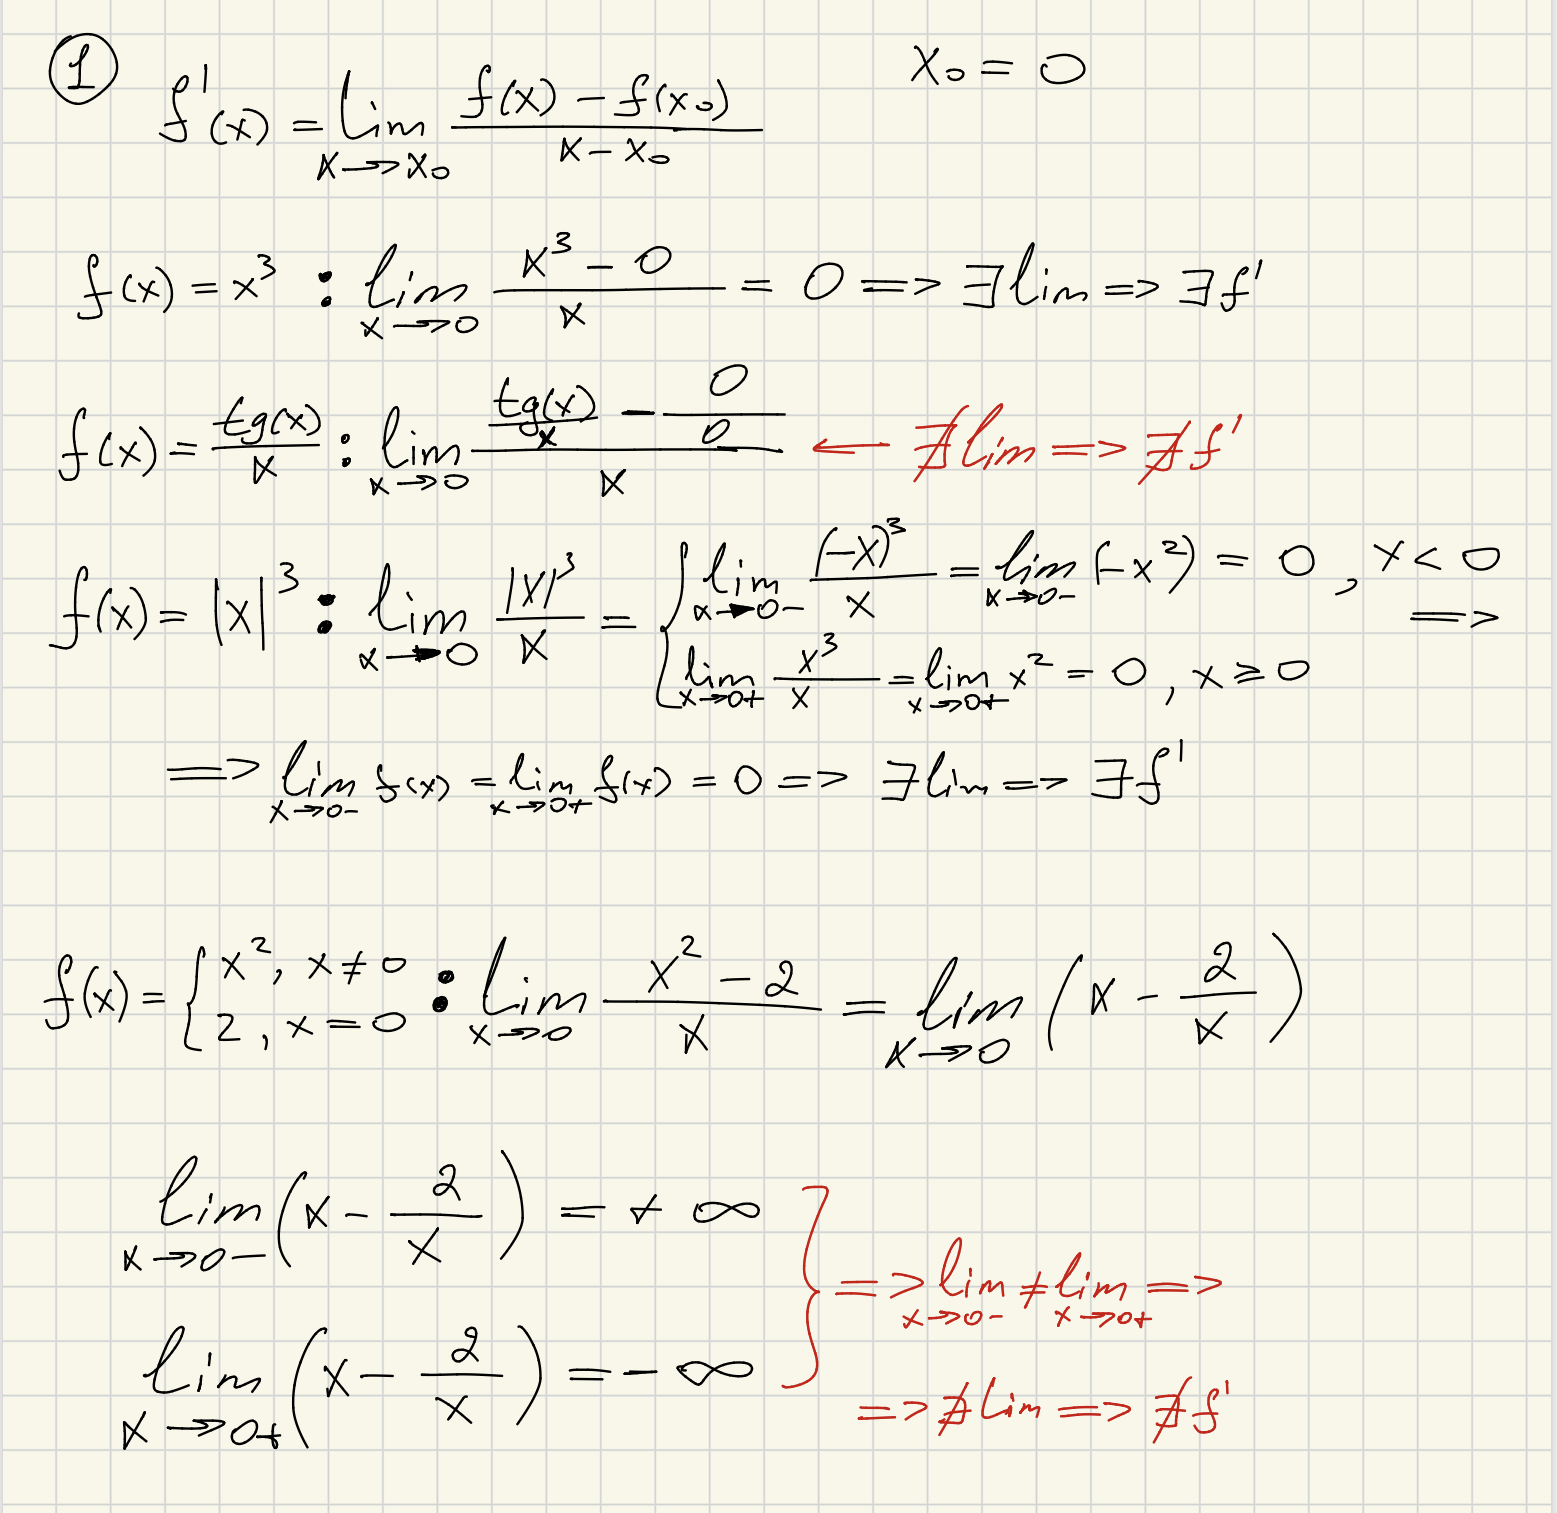 ① f'(x) = lim x→x₀ (f(x) − f(x₀))/(x − x₀)    x₀ = 0
f(x) = x³ : lim x→0 (x³ − 0)/x = 0 => ∃ lim => ∃ f'
f(x) = tg(x)/x : lim x→0 (tg(x)/x − 0/0)/x ← ∄ lim => ∄ f'
f(x) = |x|³ : lim x→0 |x|³/x = { lim x→0− (−x)³/x = lim x→0− (−x²) = 0, x < 0 =>
lim x→0+ x³/x = lim x→0+ x² = 0, x ⩾ 0
=> lim x→0− f(x) = lim x→0+ f(x) = 0 => ∃ lim => ∃ f'
f(x) = { x², x ≠ 0 ; 2, x = 0 : lim x→0 (x² − 2)/x = lim x→0 (x − 2/x)
lim x→0− (x − 2/x) = + ∞
} => lim x→0− ≠ lim x→0+ =>
lim x→0+ (x − 2/x) = − ∞
=> ∄ lim => ∄ f'